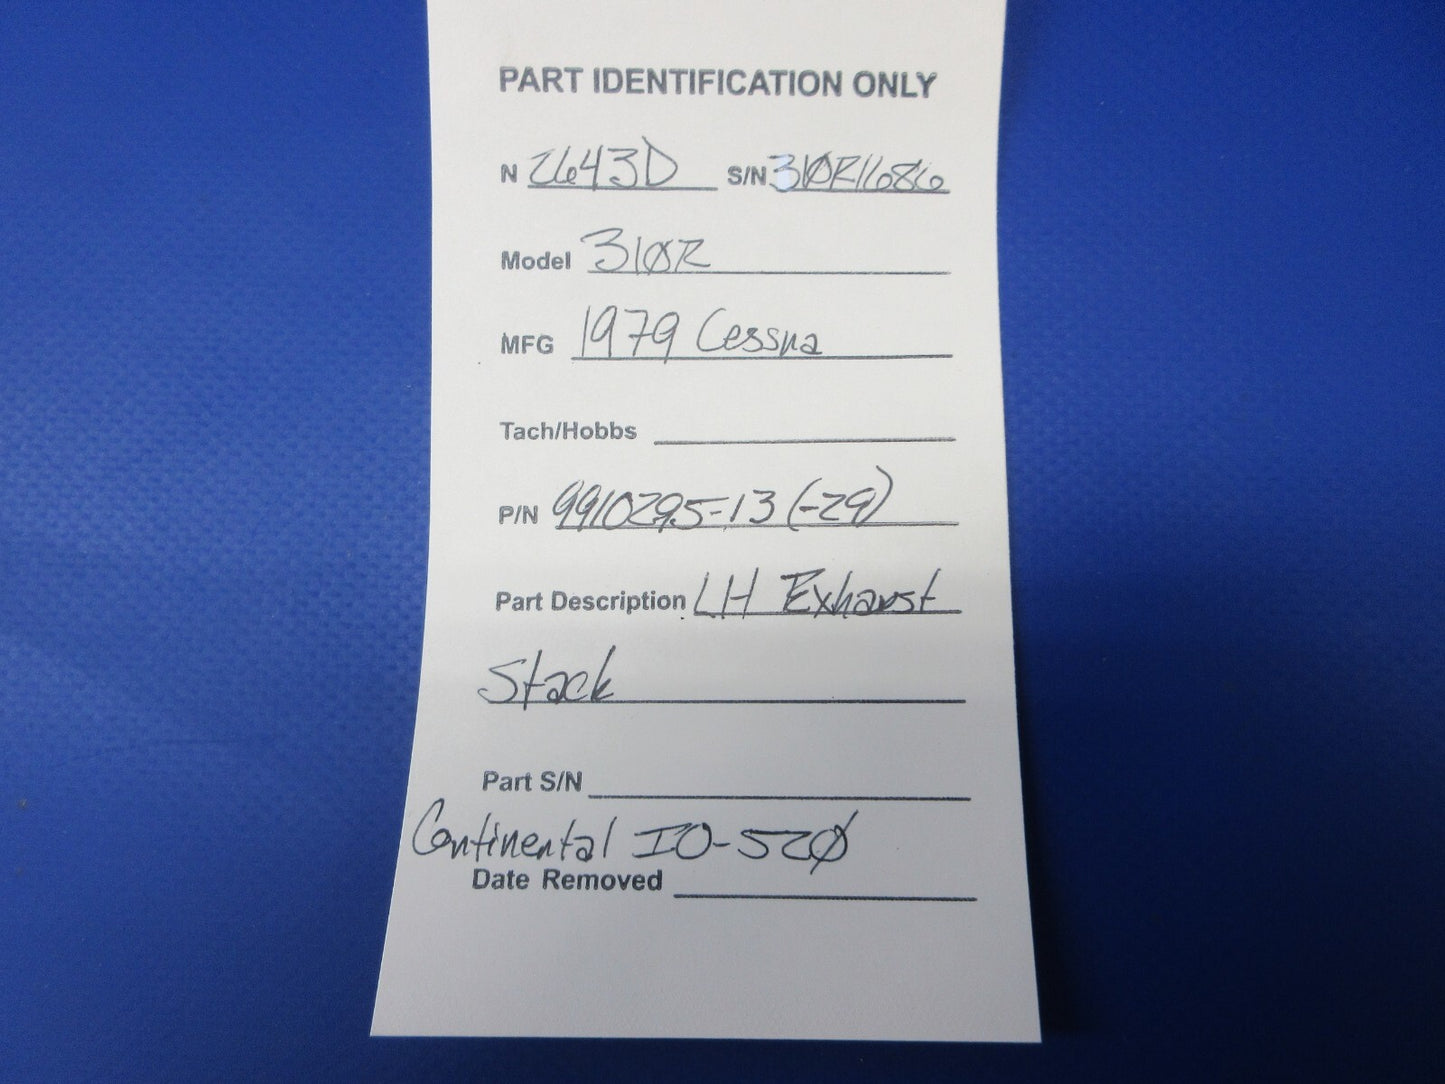 PART IDENTIFICATION ONLY
N 2643D S/N 310R1686
Model 310R
MFG 1979 Cessna
Tach/Hobbs
P/N 9910295-13 (-29)
Part Description LH Exhaust
Stack
Part S/N
Continental IO-520
Date Removed